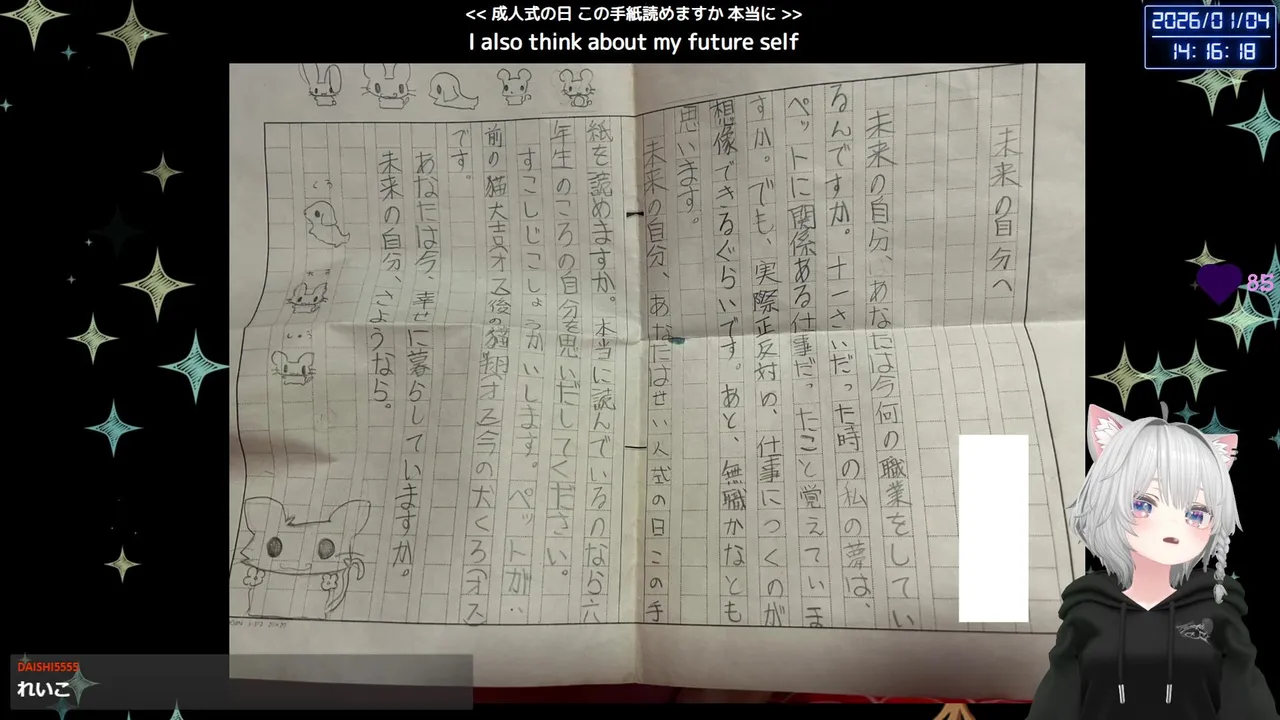 << 成人式の日 この手紙読めますか 本当に >>
I also think about my future self
2026/01/04
14:16:18
未来の自分へ
未来の自分、あなたは今何の職業をしてい
るんですか。十一さいだった時の私の夢は、
ペットに関係ある仕事だったこと覚えていま
すか。でも、実際正反対の、仕事につくのが
想像できるぐらいです。あと、無職かなとも
思います。
未来の自分、あなたはせい人式の日この手
紙を読めますか。本当に読んでいるのなら六
年生のころの自分を思いだしてください。
すこしじこしょうかいします。ペットが‥
前の猫大吉オス後の猫翔オス今の犬くろオス
です。
あなたは今、幸せに暮らしていますか。
未来の自分、さようなら。
くろ
85
DAISHI5555
れいこ